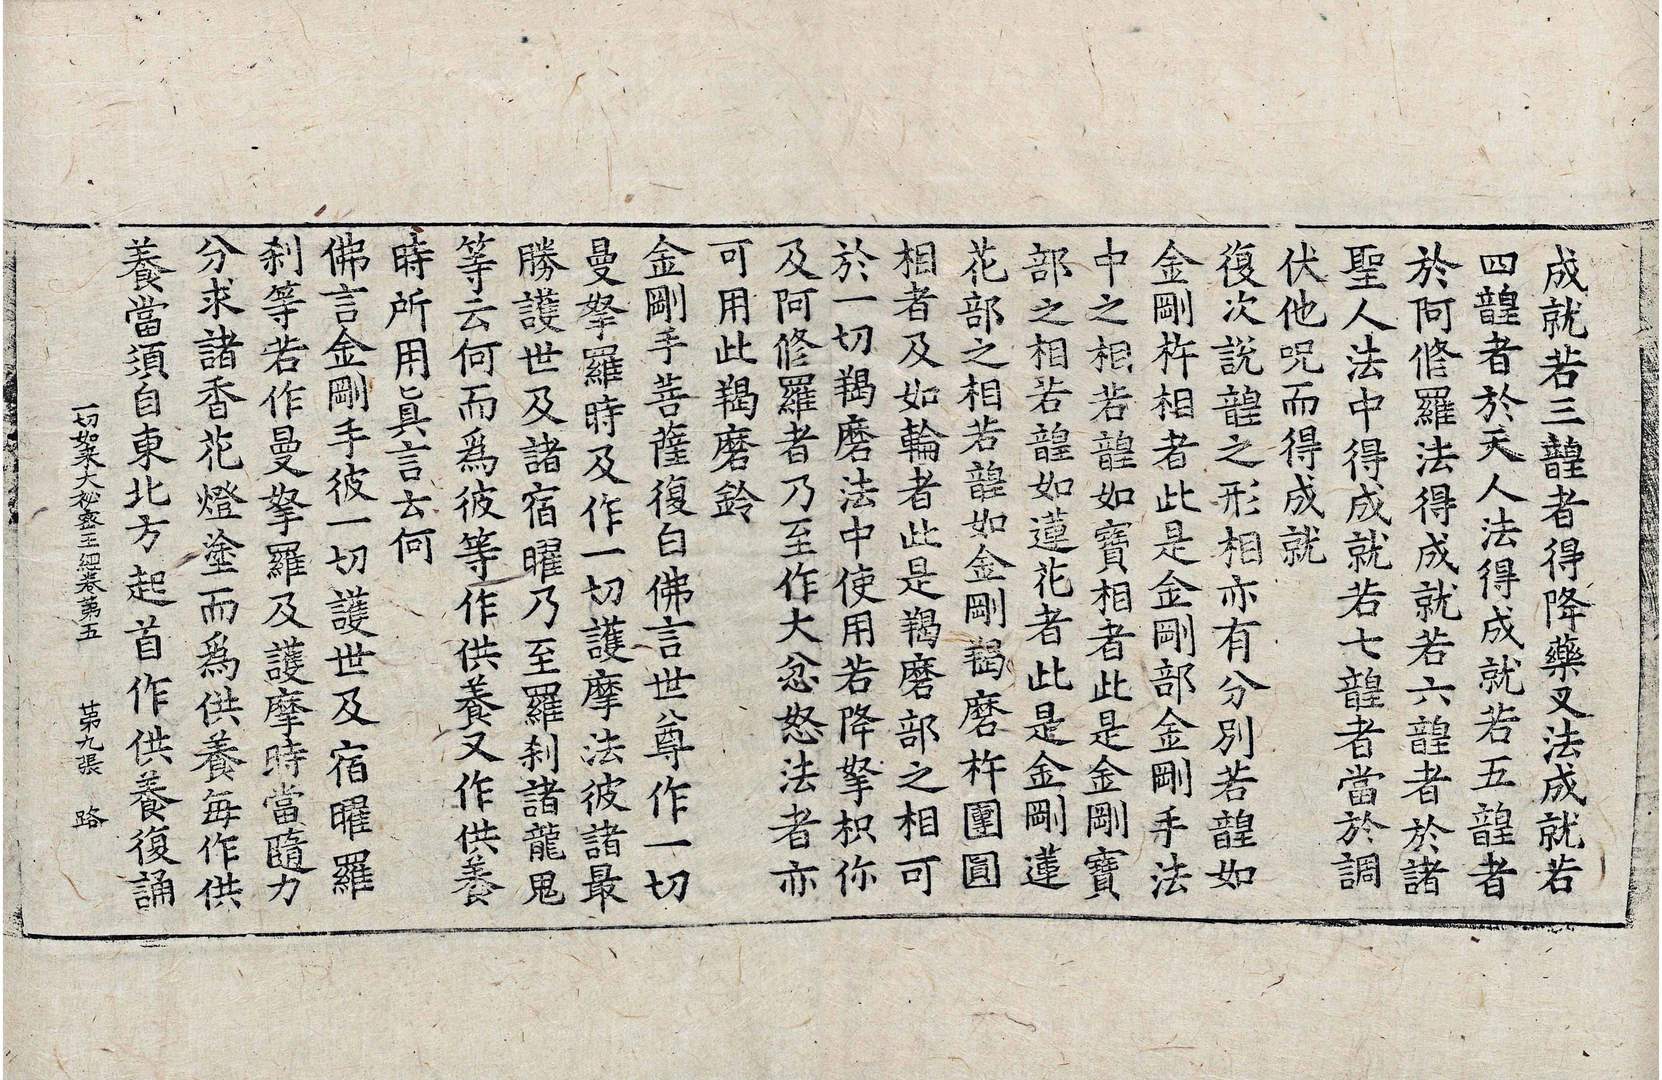 成就若三䪭者得降藥叉法成就若
四䪭者於天人法得成就若五䪭者
於阿修羅法得成就若六䪭者於諸
聖人法中得成就若七䪭者當於調
伏他呪而得成就
復次說䪭之形相亦有分別若䪭如
金剛杵相者此是金剛部金剛手法
中之相若䪭如寶相者此是金剛寶
部之相若䪭如蓮花者此是金剛蓮
花部之相若䪭如金剛羯磨杵團圓
相者及如輪者此是羯磨部之相可
於一切羯磨法中使用若降拏枳你
及阿修羅者乃至作大忿怒法者亦
可用此羯磨鈴
金剛手菩薩復白佛言世尊作一切
曼拏羅時及作一切護摩法彼諸最
勝護世及諸宿曜乃至羅刹諸龍鬼
等云何而爲彼等作供養又作供養
時所用眞言云何
佛言金剛手彼一切護世及宿曜羅
刹等若作曼拏羅及護摩時當隨力
分求諸香花燈塗而爲供養每作供
養當須自東北方起首作供養復誦
一切如來大秘密王經卷第五 第九張 路